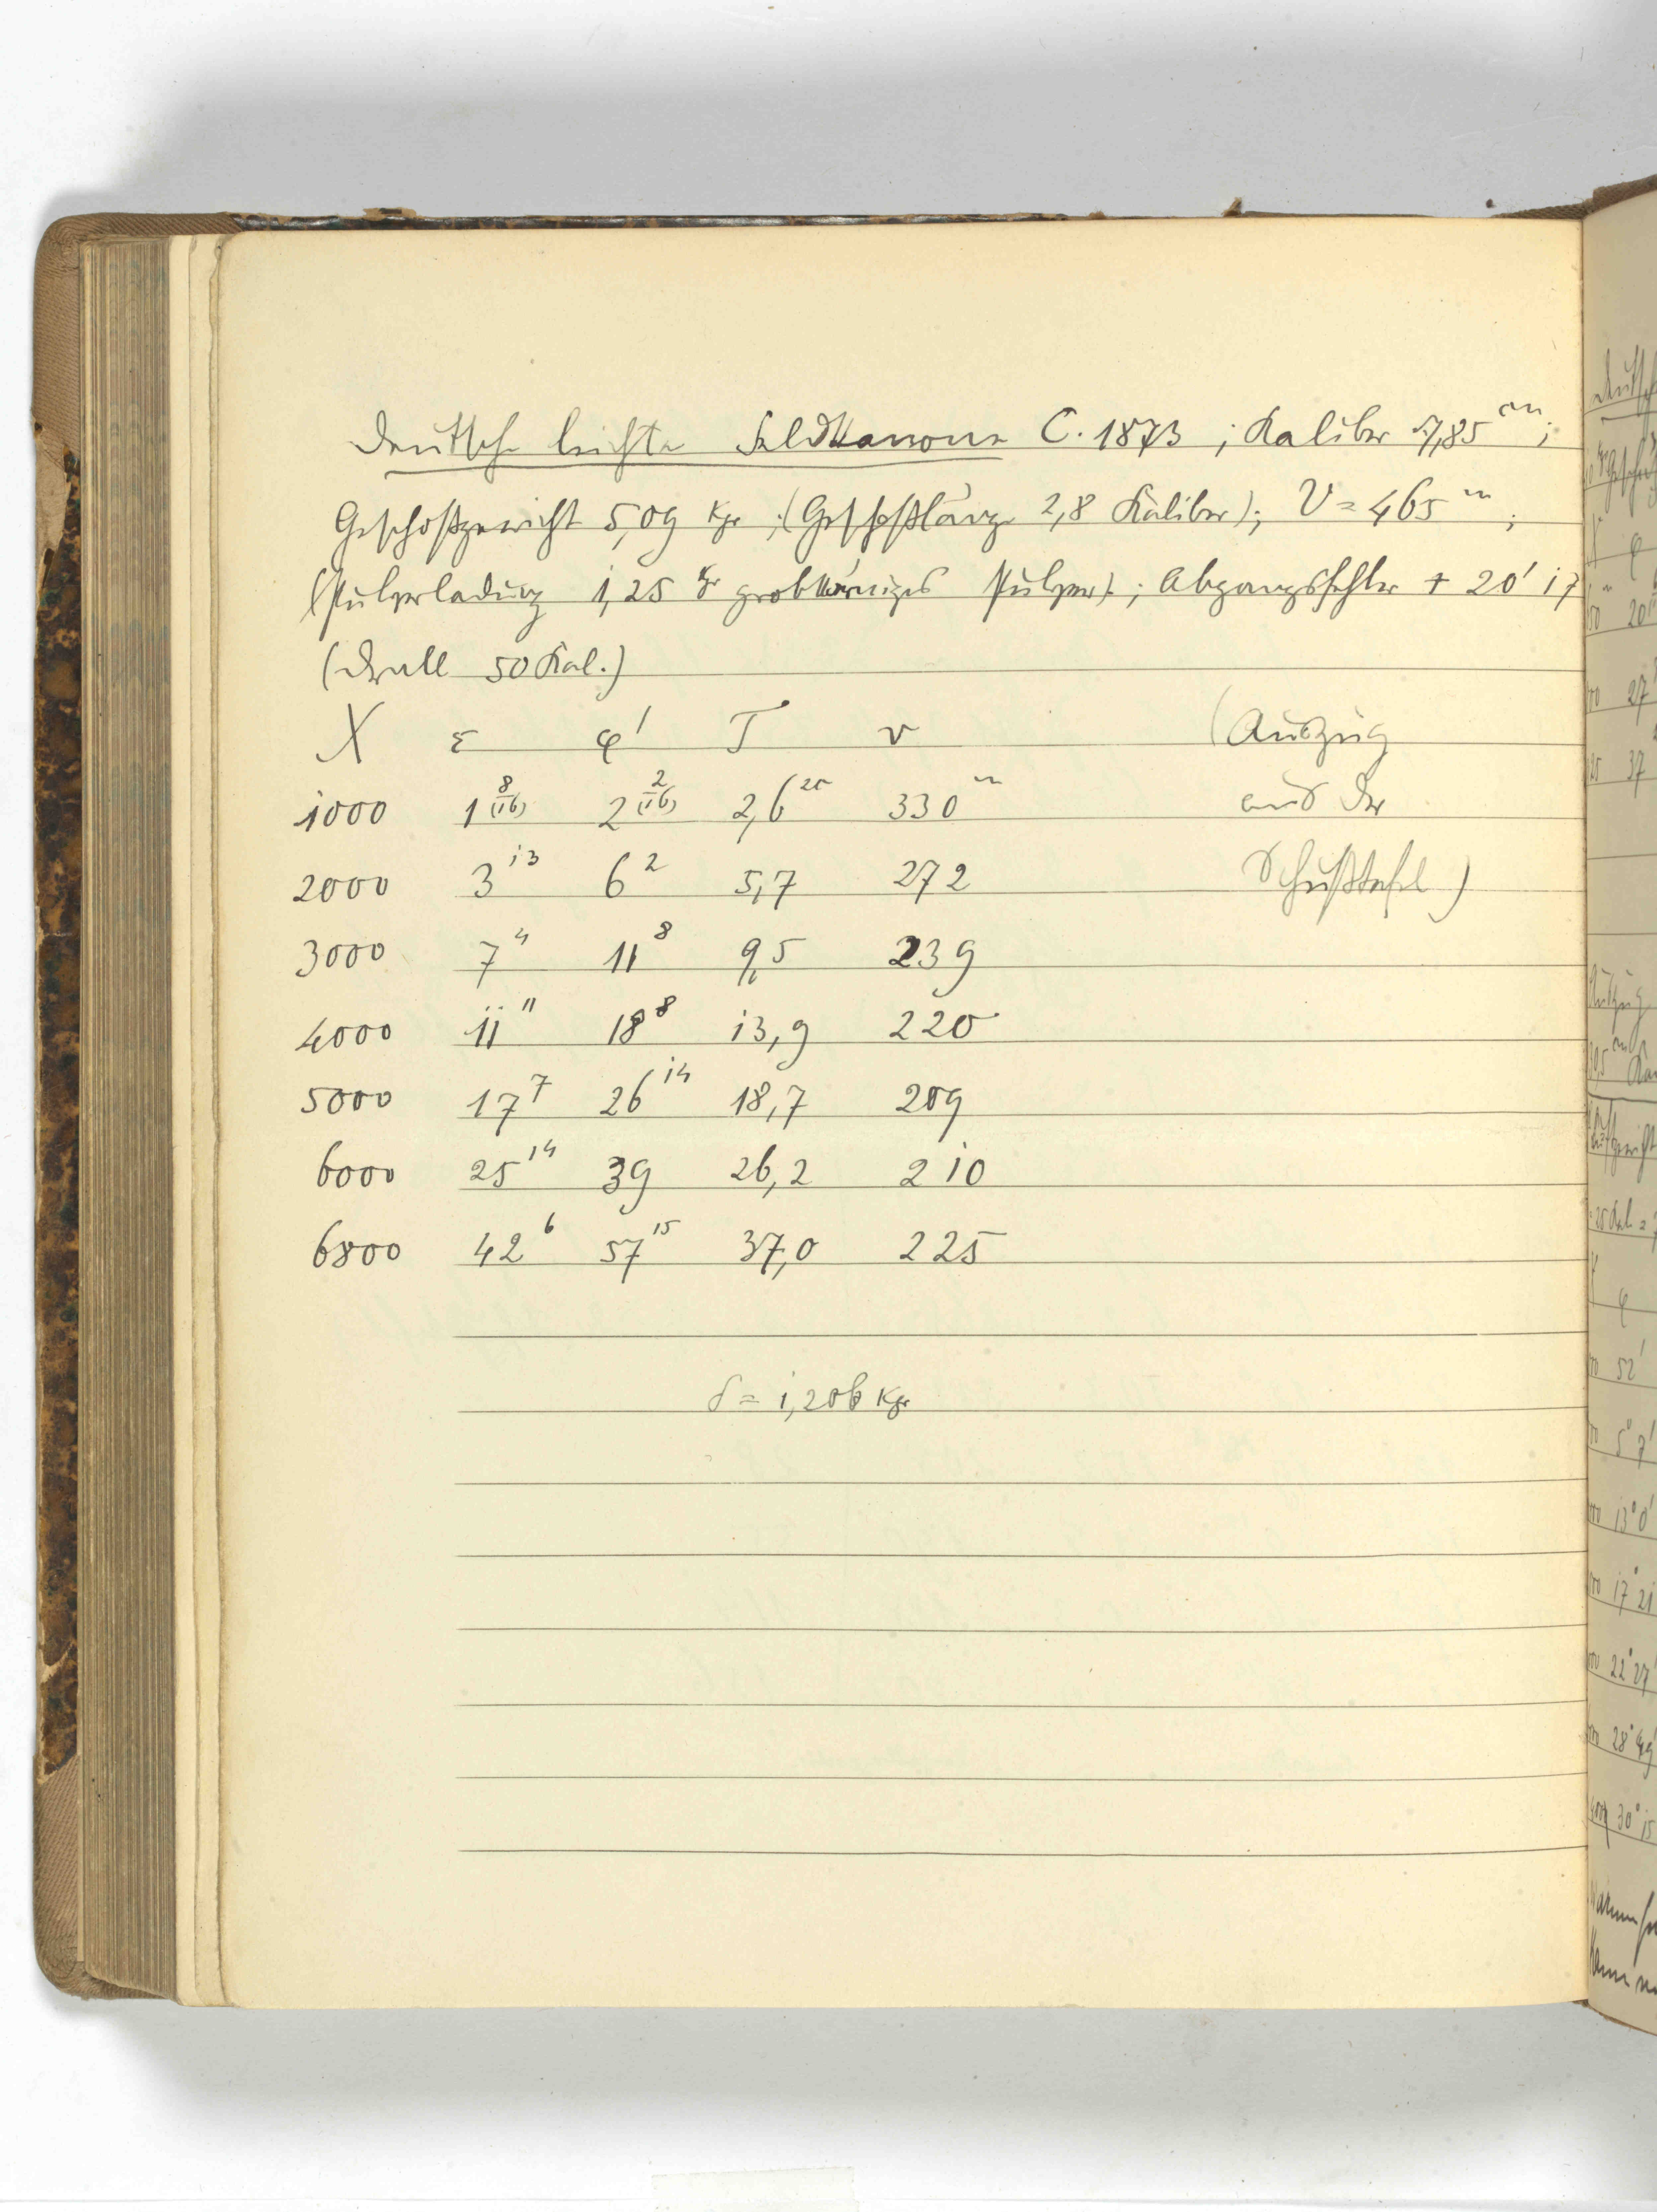 Deutsche leichte Feldkanone C. 1873 ; Kaliber 7,85 cm ;
Geschoßgewicht 5,09 Kgr ; (Geschoßlänge 2,8 Kaliber) ; V = 465 m ;
(Pulverladung 1,25 Kgr grobkörniges Pulver) ; Abgangsfehler + 20' 17
(Drall 50 Kal.)
X ε φ' T v (Auszug
1000 1 8/(16) 2 2/(16) 2,6 25 330 m aus der
2000 3 13 6 2 5,7 272 Schußtafel)
3000 7 4 11 8 9,5 239
4000 11 11 18 8 13,9 220
5000 17 7 26 14 18,7 209
6000 25 14 39 26,2 210
6800 42 6 57 15 37,0 225
δ = 1,206 Kgr
φ
20
27
25 37
Auszug
φ
52'
5° 7'
13° 0'
17° 21
22° 27'
28° 49'
30° 15